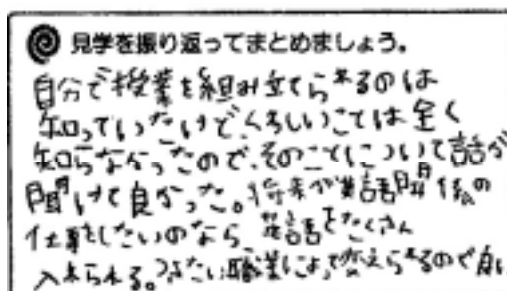 見学を振り返ってまとめましょう。
自分で授業を組み立てられるのは
知っていたけど、くわしいことは全く
知らなかったので、そのことについて話が
聞けて良かった。将来が英語関係の
仕事をしたいのなら、英語をたくさん
入れられる。つきたい職業によって変えられるので良い